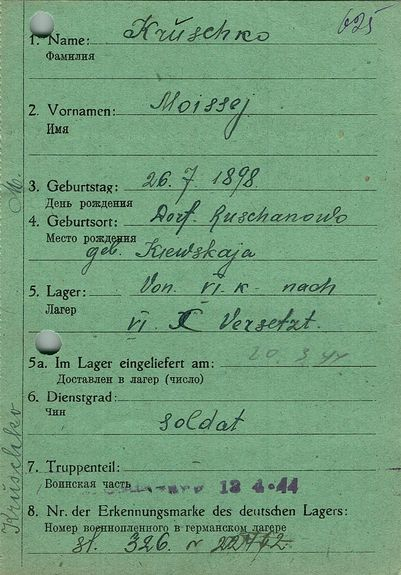 625
1. Name: Kruschko
Фамилия
2. Vornamen: Moissej
Имя
3. Geburtstag: 26. 7. 1898.
День рождения
4. Geburtsort: Dorf. Ruschanowo
Место рождения
geb. Kiewskaja
5. Lager: Von VI. K - nach
Лагер
VI. Versetzt.
5a. Im Lager eingeliefert am: 20. 3. 44
Доставлен в лагер (число)
6. Dienstgrad:
Чин
Soldat
7. Truppenteil:
Воинская часть 13 4. 44
8. Nr. der Erkennungsmarke des deutschen Lagers:
Номер военнопленного в германском лагере
st. 326. N
M.
Kruschko